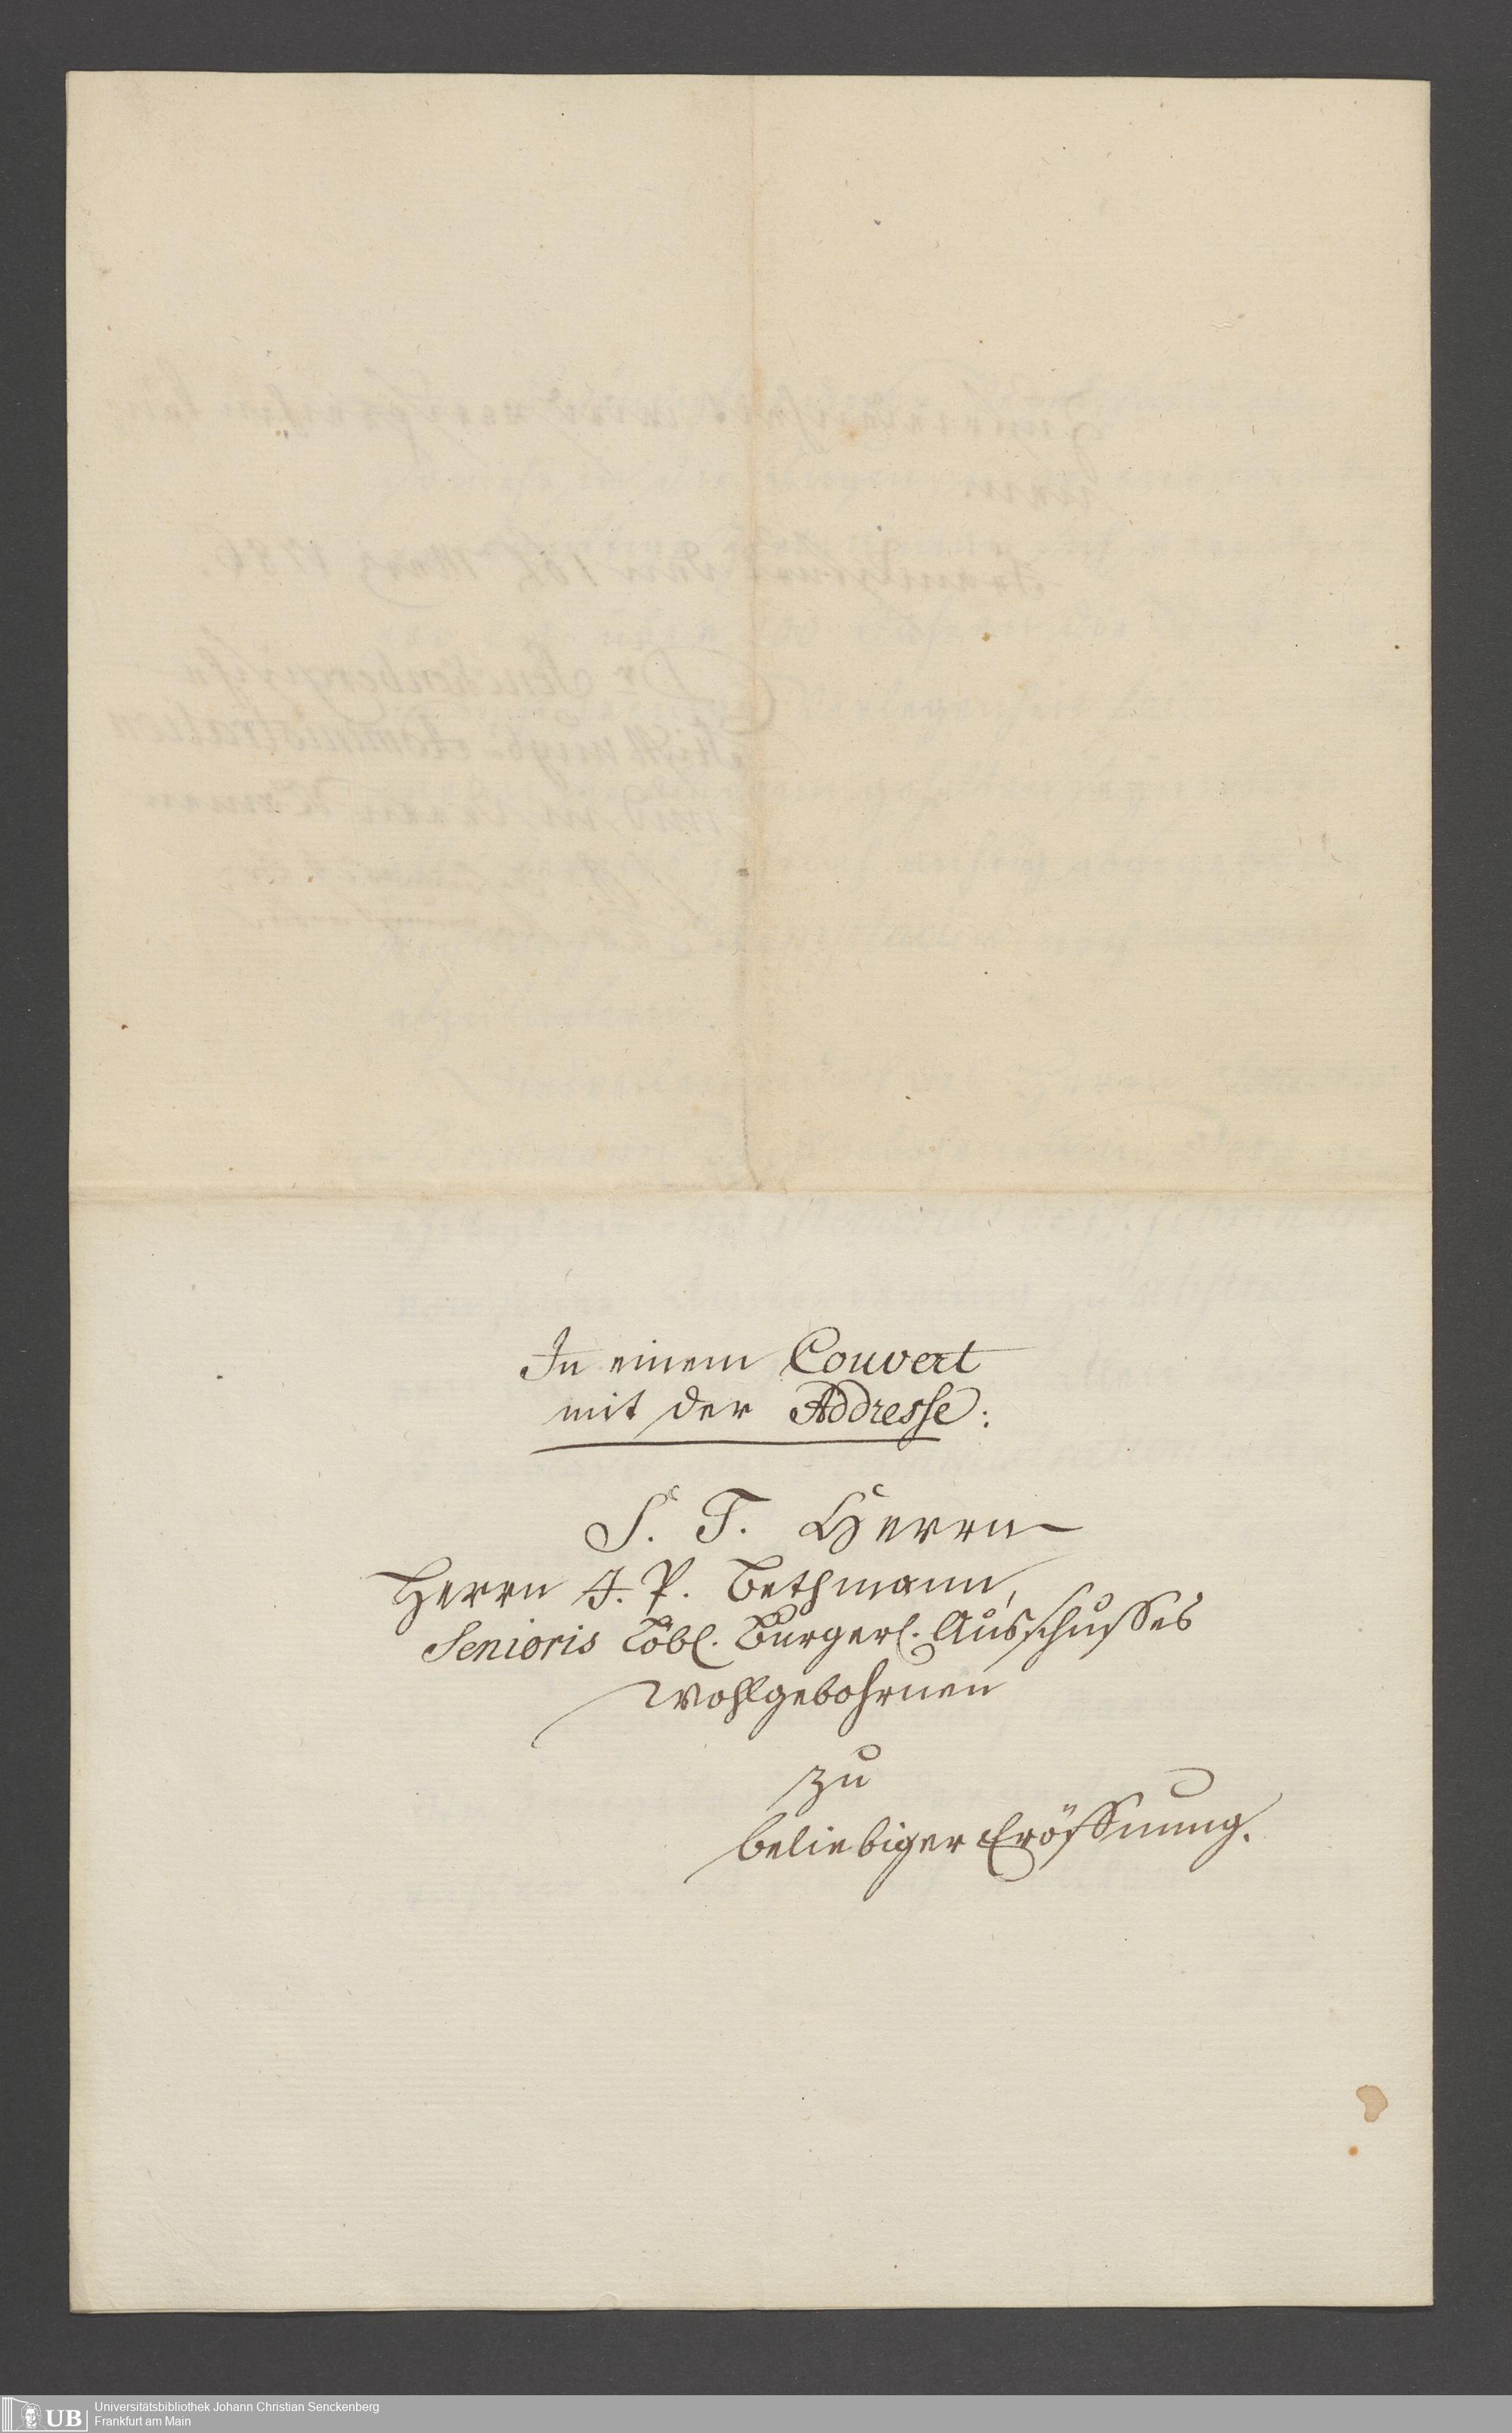 In einem Couvert
mit der Addresse:
S. T. Herrn
Herrn J. P. Bethmann,
Senioris Löbl. Bürgerl. Ausschusses
Wohlgebohrnen
zu
beliebiger Eröffnung.
UB
Universitätsbibliothek Johann Christian Senckenberg
Frankfurt am Main